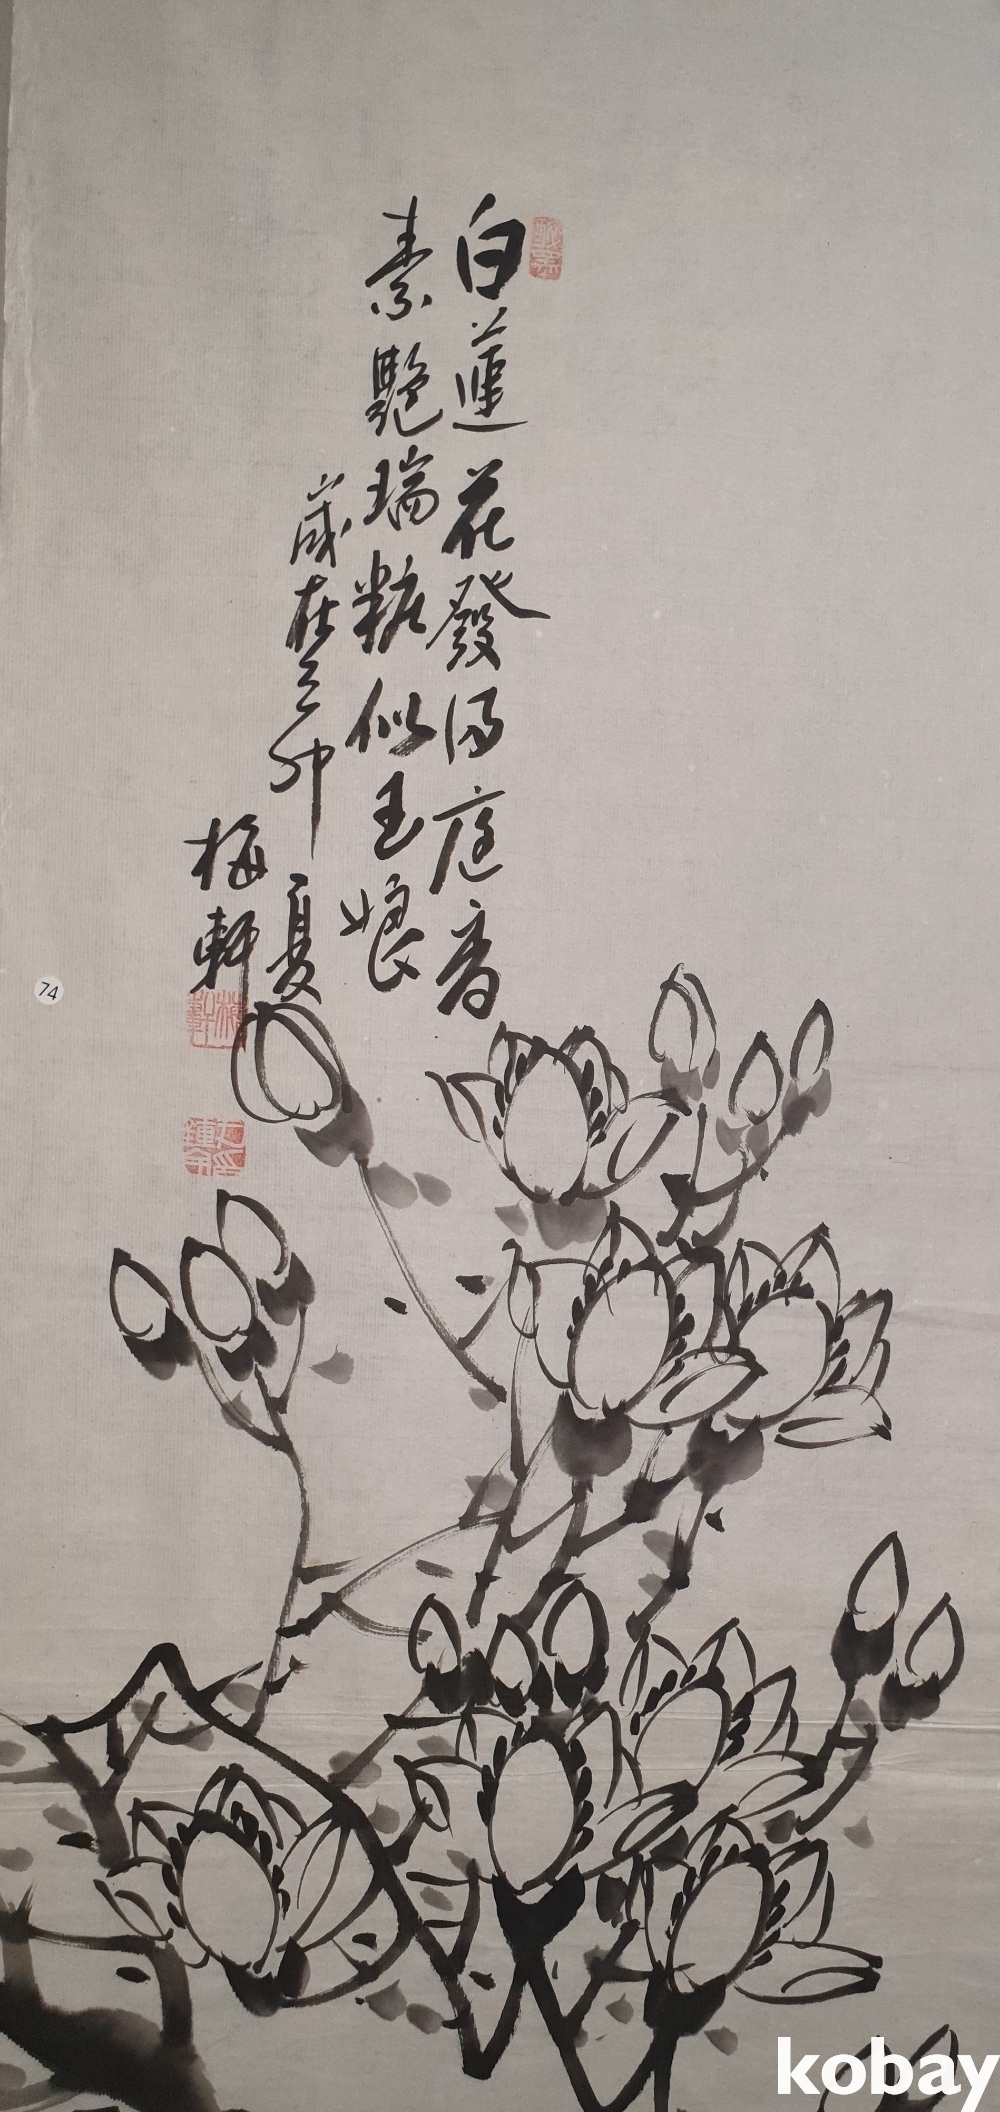 白蓮花發滿庭香
素艷瑞粧似玉娘
歲在乙卯夏
梅軒
74
kobay